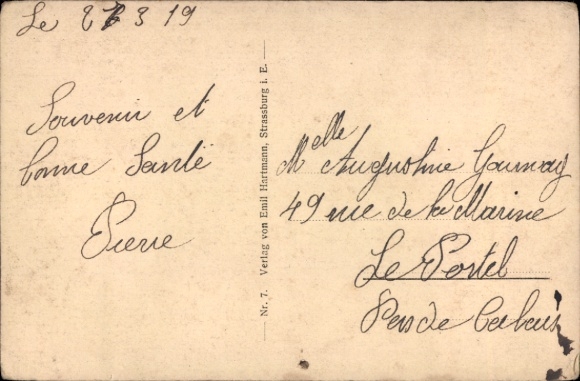 Le 27 3 19
Souvenir et
bonne Santé
Pierre
Nr. 7. Verlag von Emil Hartmann, Strassburg i. E.
Melle Augustine
49 rue de la Marine
Le Portel
Pas de Calais